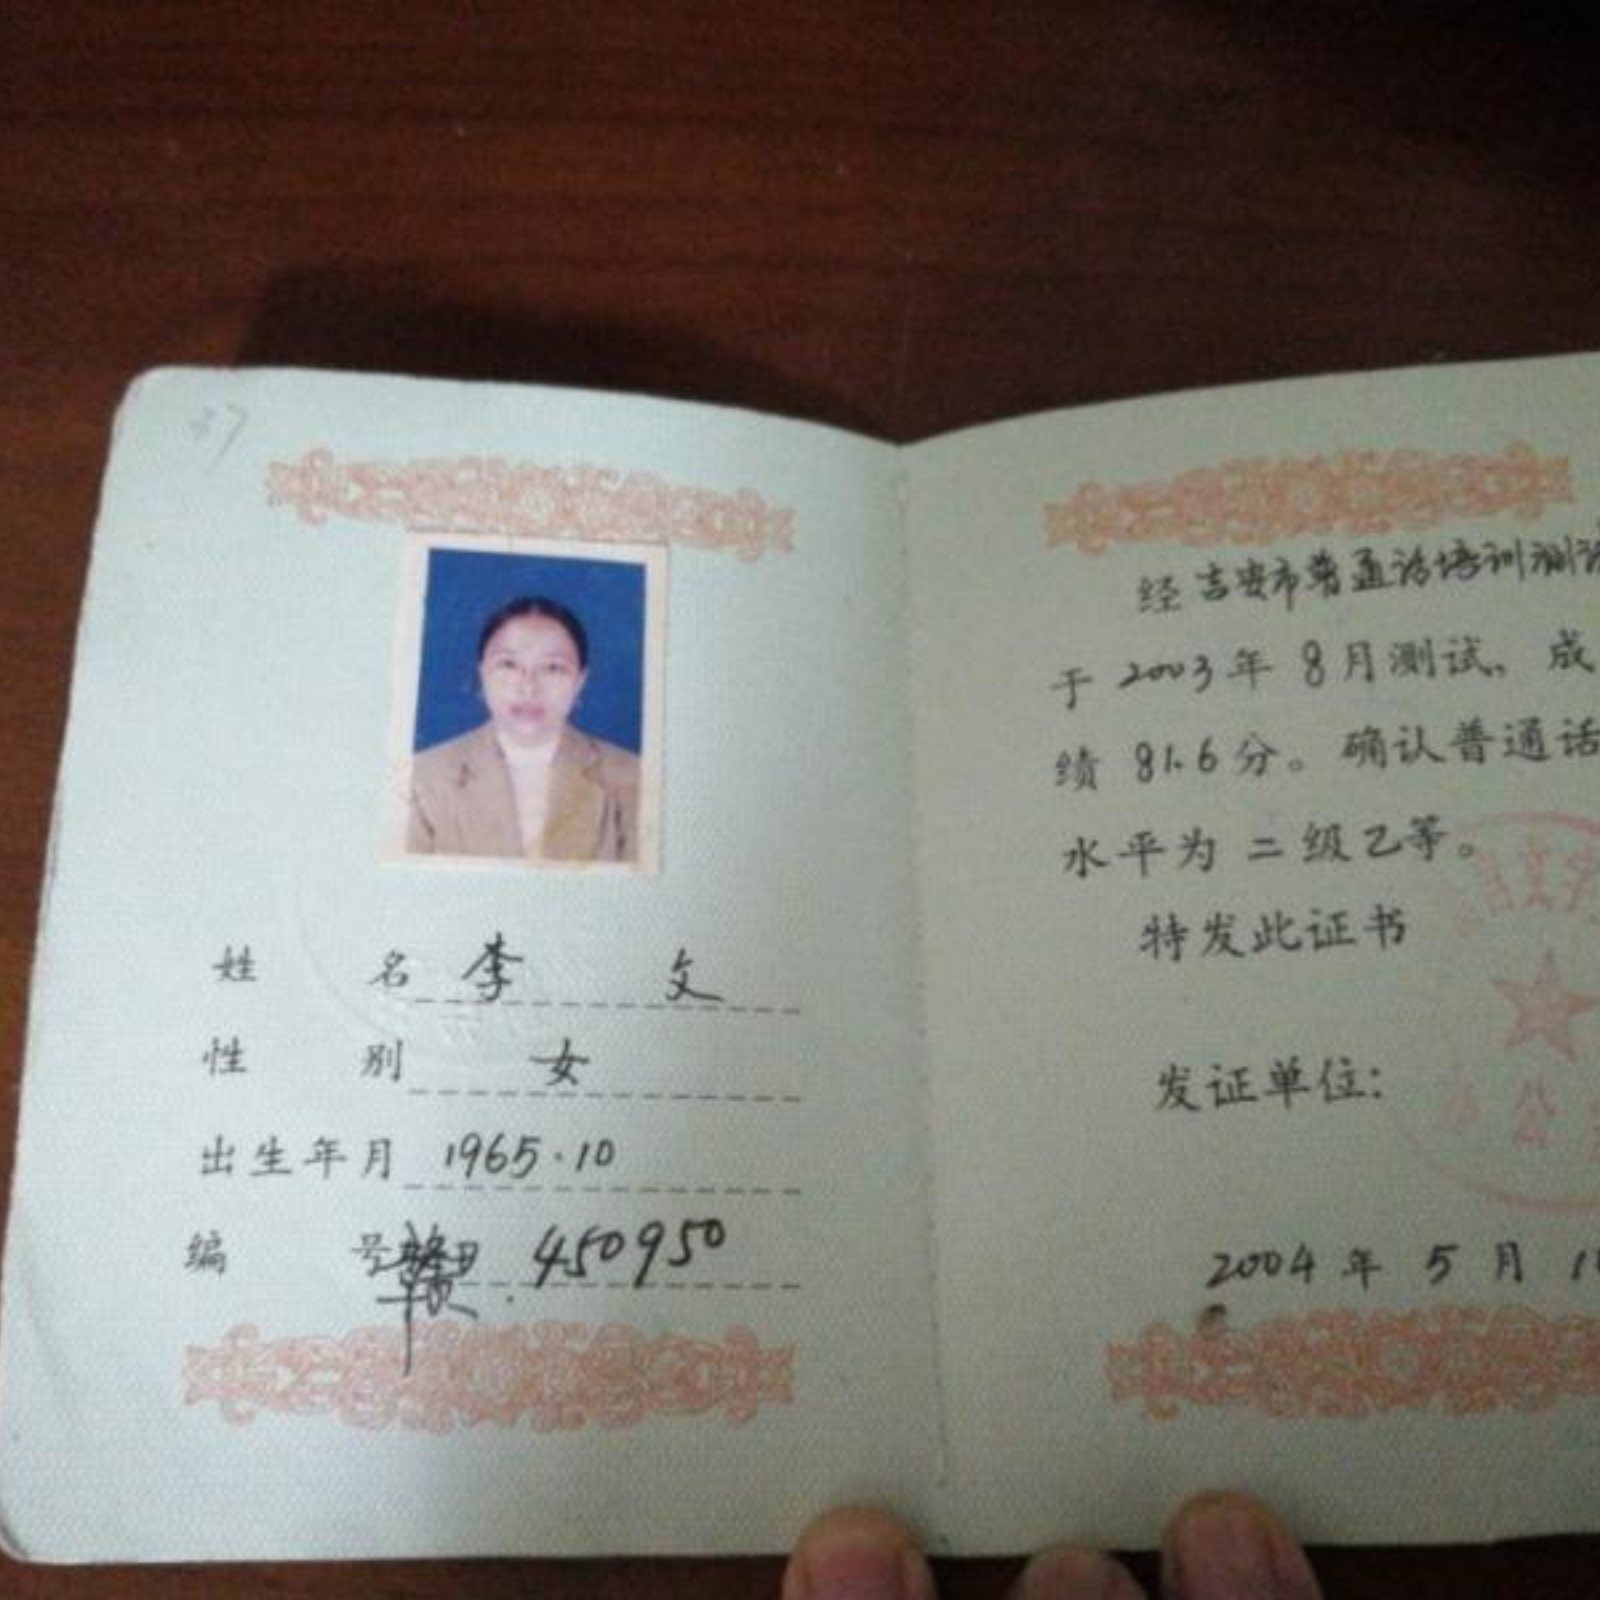 37
姓 名 李 文
性 别 女
出生年月 1965.10
编 号 赣 450950
经吉安市普通话培训测试
于 2003年 8月测试,成
绩 81.6分。确认普通话
水平为 二级乙等。
特发此证书
发证单位:
2004 年 5 月 1